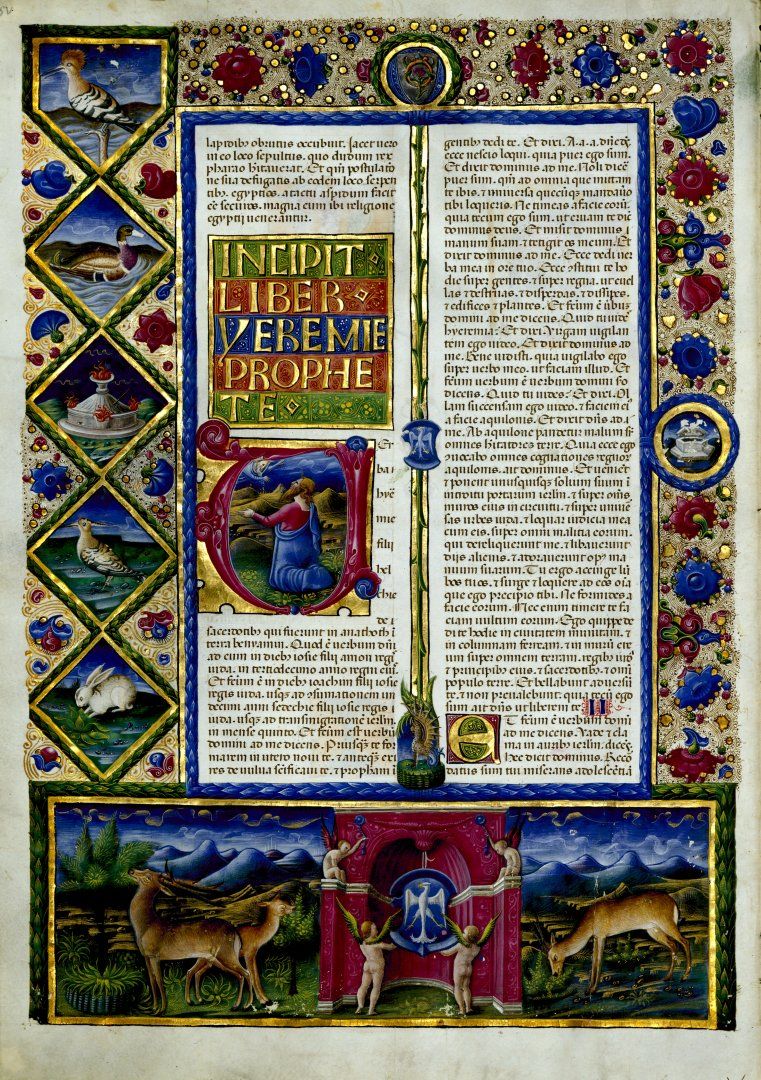 lapidib9 obrutus occubuit. Iacet uero
in eo loco sepultus. quo dudum rex
pharao hitauerat. Et qm postulatio
ne sua defugatis ab eodem loco serpen
tib9. egyptios. a tacti aspidum facit
ee securos. magna eum ibi religione
egyptij uenerantur.
INCIPIT
LIBER
YEREMIE
PROPHE
TE
U Er
ba
hye
mie
filij
hel
chie
de i
sacerdotib9 qui fuerunt in anathoth i
terra beniamin. Quod e uerbum dni
ad eum in dieb9 iosie filij amon regis
iuda. in tertiodecimo anno regni eius.
Et feum e in dieb9 ioachim filij iosie
regis iuda. usq3 ad consumationem un
decimi anni sedechie filij iosie regis
iuda. usq3 ad transmigrationem ierlm.
in mense quinto. Et feum est uerbu
domini ad me dicens. Priusq3 te for
marem in utero noui te. & anteq3 exi
res de uulua scificaui te. & propham i
gentib9 dedi te. Et dixi. A.a.a. dne de.
ecce nescio loqui. quia puer ego sum.
Et dixit dominus ad me. Noli dice
puer sum. qm ad omnia que mittam
te ibis. & uniuersa quecunq3 mandauo
tibi loqueris. Ne timeas a facie eoru.
quia tecum ego sum. ut eruam te dic
dominus deus. Et misit dominus i
manum suam. & tetigit os meum. Et
dixit dominus ad me. Ecce dedi uer
ba mea in ore tuo. Ecce ostitui te ho
die super gentes. & super regna. ut euel
las & destruas. & disperdas. & dissipes.
& edifices & plantes. Et feum e ubum
domini ad me dicens. Quid tu uides
hyeremia: Et dixi. Uirgam uigilan
tem ego uideo. Et dixit dominus ad
me. Bene uidisti. quia uigilabo ego
super uerbo meo. ut faciam illud. Et
feum uerbum e uerbum domini so
dicens. Quid tu uides: Et dixi. Ol
lam succensam ego uideo. & faciem ei9
a facie aquilonis. Et dixit dns ad
me. Ab aquilone pandetur malum su
omnes hitatores terre. Quia ecce ego
conuocabo omnes cognationes regnoru
aquilonis. ait dominus. Et uenient
& ponent unusquisq3 solium suum i
introitu portarum ierlm. & super oms
muros eius in circuitu. & super uniuer
sas urbes iuda. & loquar iudicia mea
cum eis. super omni malitia eorum.
qui dereliquerunt me. & libauerunt
dijs alienis. & adorauerunt op9 ma
nuum suarum. Tu ergo accinge lu
bos tuos. & surge & loquere ad eos oia
que ego precipio tibi. Ne formides a
facie eorum. Nec enim timere te fa
ciam uultum eorum. Ego quippe de
di te hodie in ciuitatem munitam. &
in columnam ferream. & in muru ere
um super omnem terram. regib9 iuda
& principib9 eius. & sacerdotib9. & omi
populo terre. Et bellabunt aduersu
te. & non preualebunt. quia tecu ego
sum ait dns ut liberem te. II
ET feum e uerbum domini
ad me dicens. Uade & cla
ma in aurib9 ierlm. dices.
Hec dicit dominus. Reco
datus sum tui miserans adolescetia